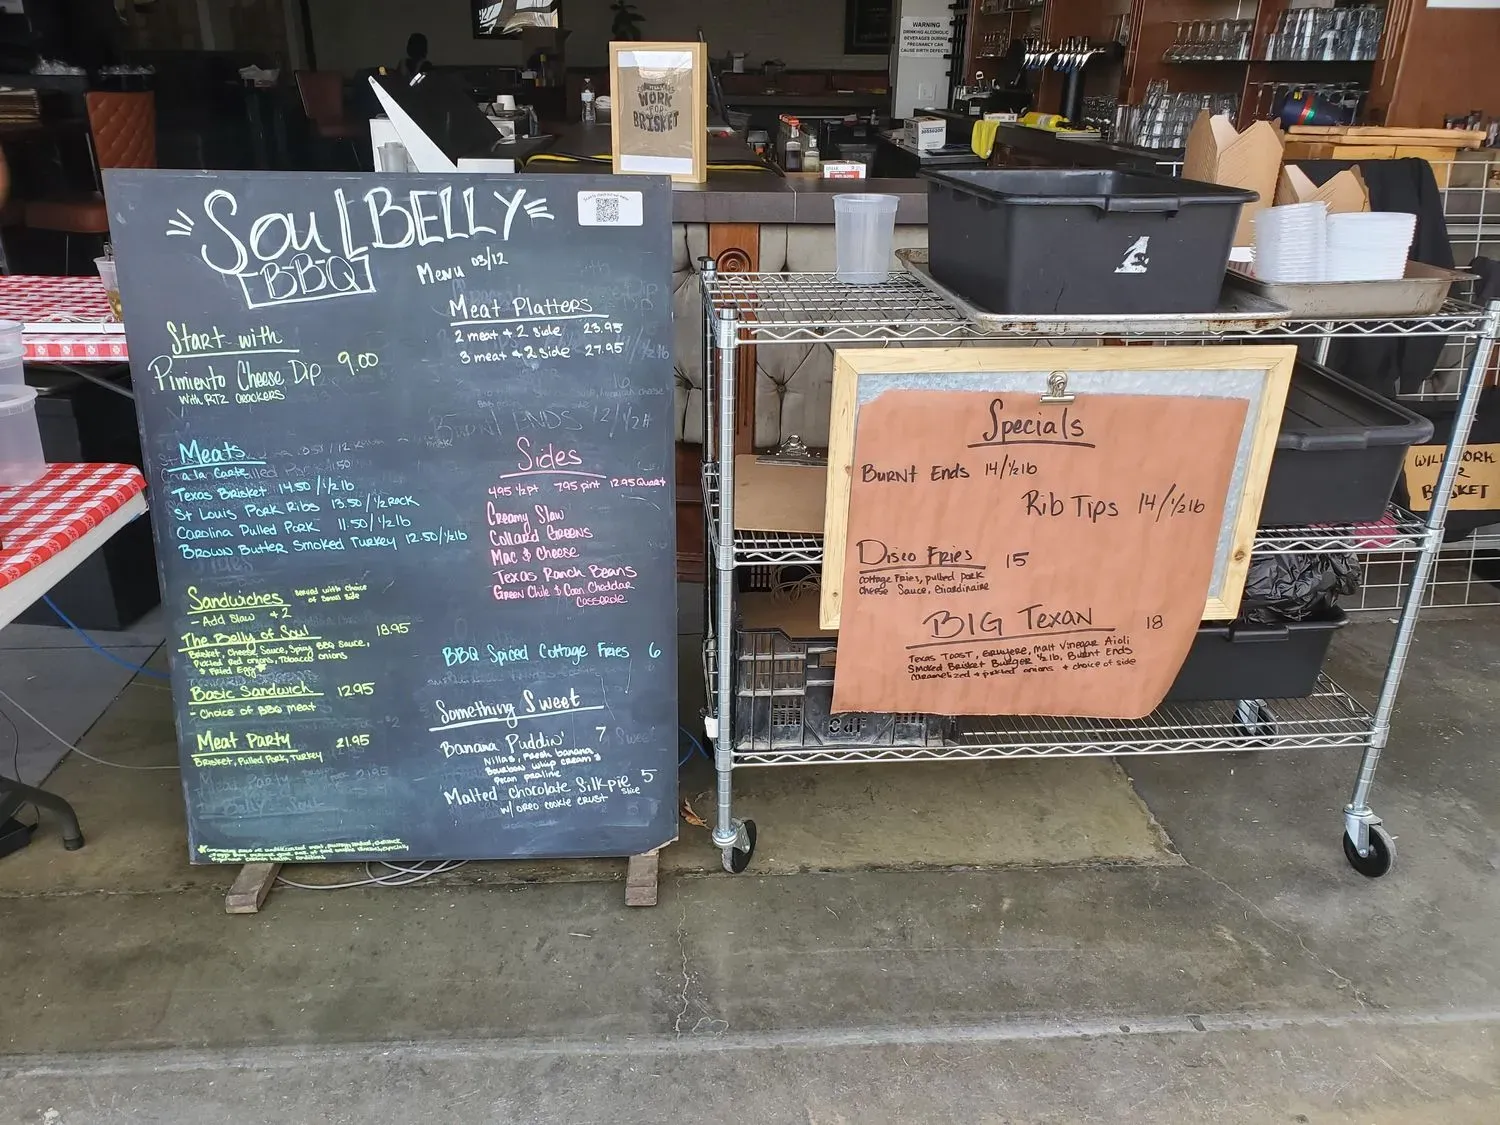 SoulBELLY
B-B-Q
Menu 03/12
Start with
Pimiento Cheese Dip 9.00
with RTZ crackers
Meat Platters
2 meat + 2 side 23.95
3 meat + 2 side 27.95
Meats
a la Carte
Texas Brisket 14.50/½lb
St Louis Pork Ribs 13.50/½ Rack
Carolina Pulled Pork 11.50/½lb
Brown Butter Smoked Turkey 12.50/½lb
Sides
4.95 ½pt 7.95 pint 12.95 Quart
Creamy Slaw
Collard Greens
Mac & Cheese
Texas Ranch Beans
Green Chile & Corn Cheddar
Casserole
Sandwiches served with choice
of small side
- Add Slaw +2
The Belly of Soul 18.95
Brisket, Cheese Sauce, Spicy BBQ Sauce,
Pickled red onions, Tobacco onions
& Fried Egg*
Basic Sandwich 12.95
- Choice of BBQ meat
Meat Party 21.95
Brisket, Pulled Pork, Turkey
BBQ Spiced Cottage Fries 6
Something Sweet
Banana Puddin' 7
Nillas, fresh banana,
Bourbon whip cream &
Pecan praline
Malted chocolate Silk pie 5
slice
w/ oreo cookie crust
WILL
WORK
FOR
BRISKET
WARNING
DRINKING ALCOHOLIC
BEVERAGES DURING
PREGNANCY CAN
CAUSE BIRTH DEFECTS
Specials
Burnt Ends 14/½lb
Rib Tips 14/½lb
Disco Fries 15
Cottage Fries, pulled pork
Cheese Sauce, Giardinaire
BIG TEXAN 18
Texas Toast, Gruyere, Malt Vinegar Aioli
Smoked Brisket Burger ½ lb, Burnt Ends
Caramelized + pickled onions + choice of side
WILL WORK
BRISKET